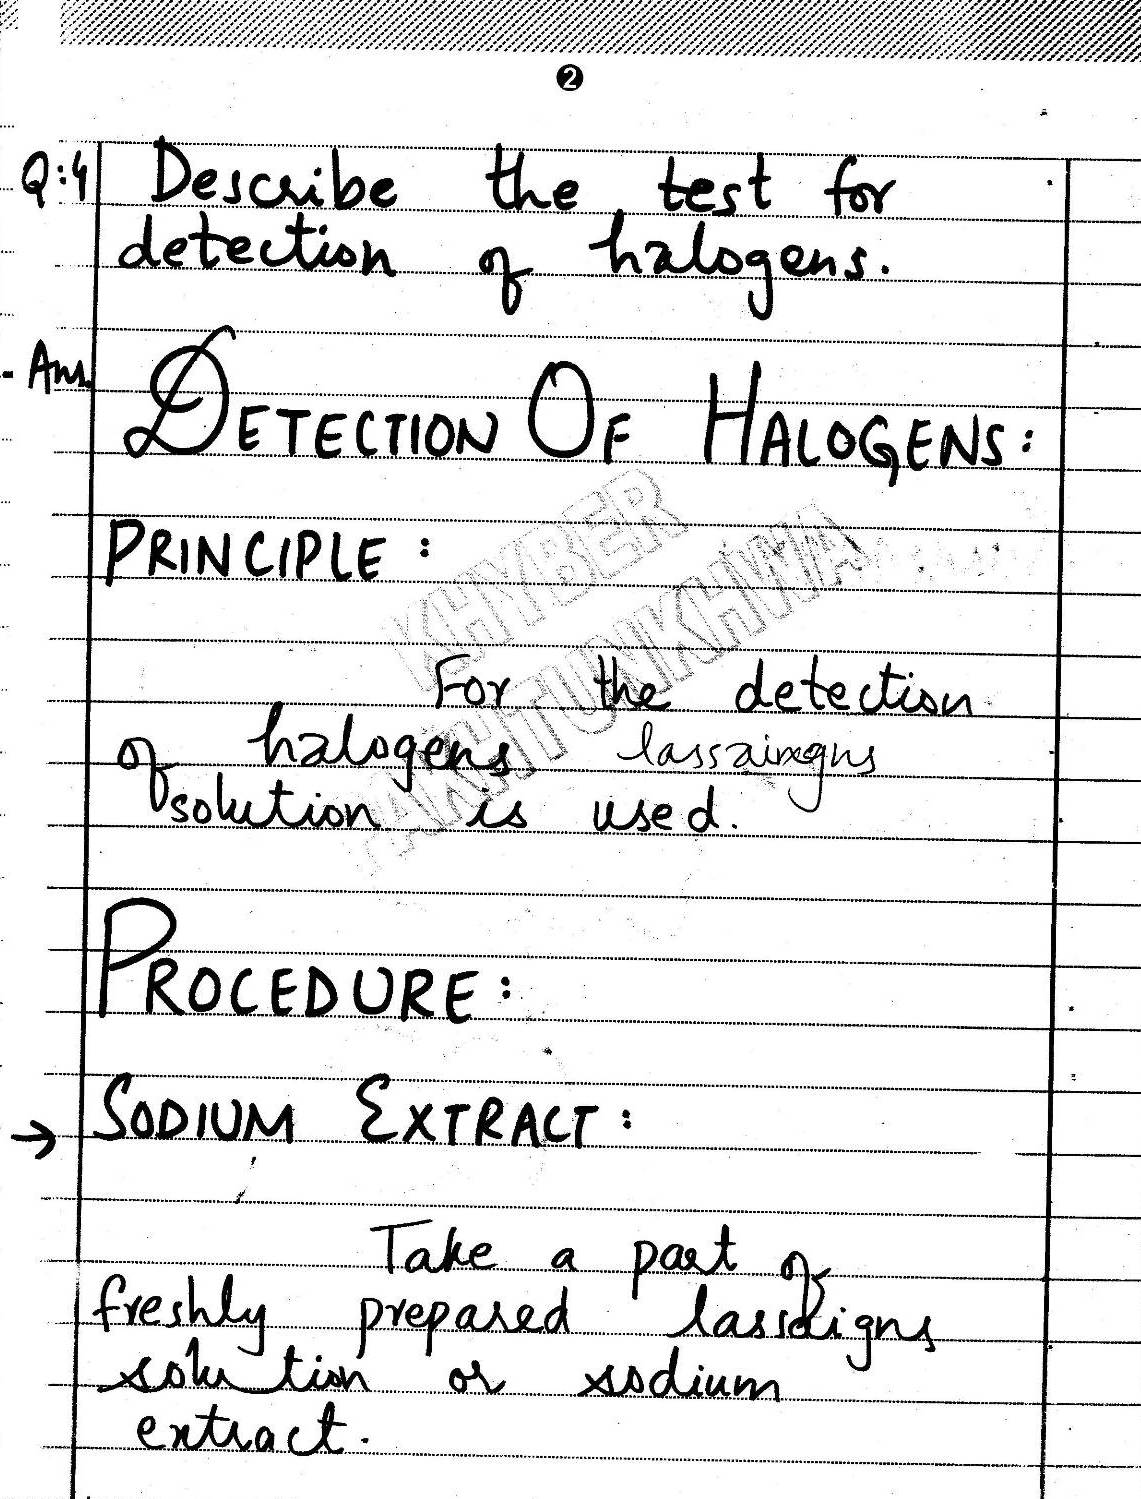 2
Q:4 Describe the test for
detection of halogens.
Ans. DETECTION OF HALOGENS:
PRINCIPLE:
KHYBER
PAKHTUNKHWA
For the detection
of halogens lassaingns
solution is used.
PROCEDURE:
→ SODIUM EXTRACT:
Take a part of
freshly prepared lassaigns
solution or sodium
extract.